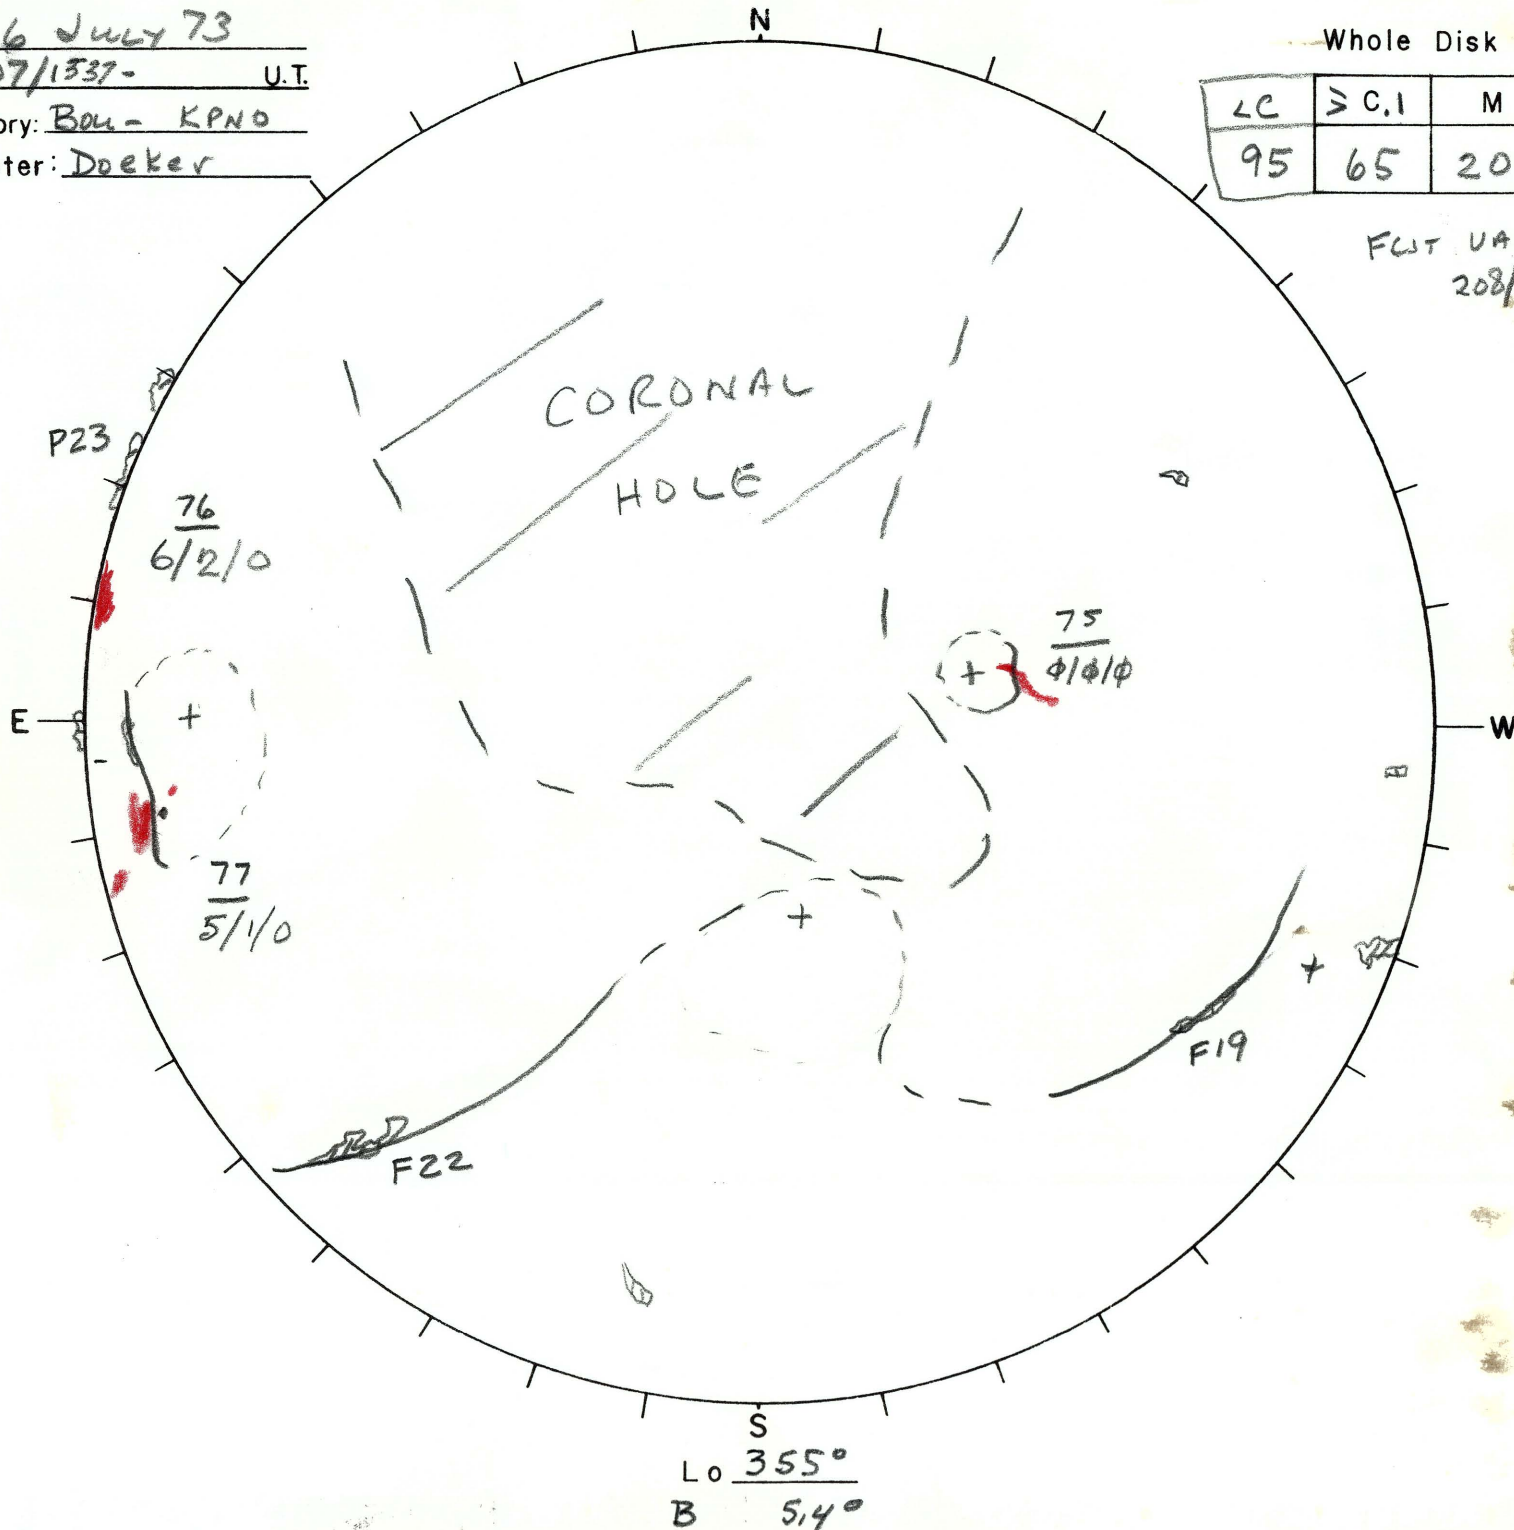 6 July 73
07/1537- U.T.
ory: Bou- KPNO
ter: Doeker
N
Whole Disk
<C ≥ C.1 M
95 65 20
FCST VA
208/
CORONAL
HOLE
P23
76
6/2/0
75
ϕ/ϕ/ϕ
E
W
+
+
77
5/1/0
+
+
F19
F22
S
Lo 355°
B 5.4°